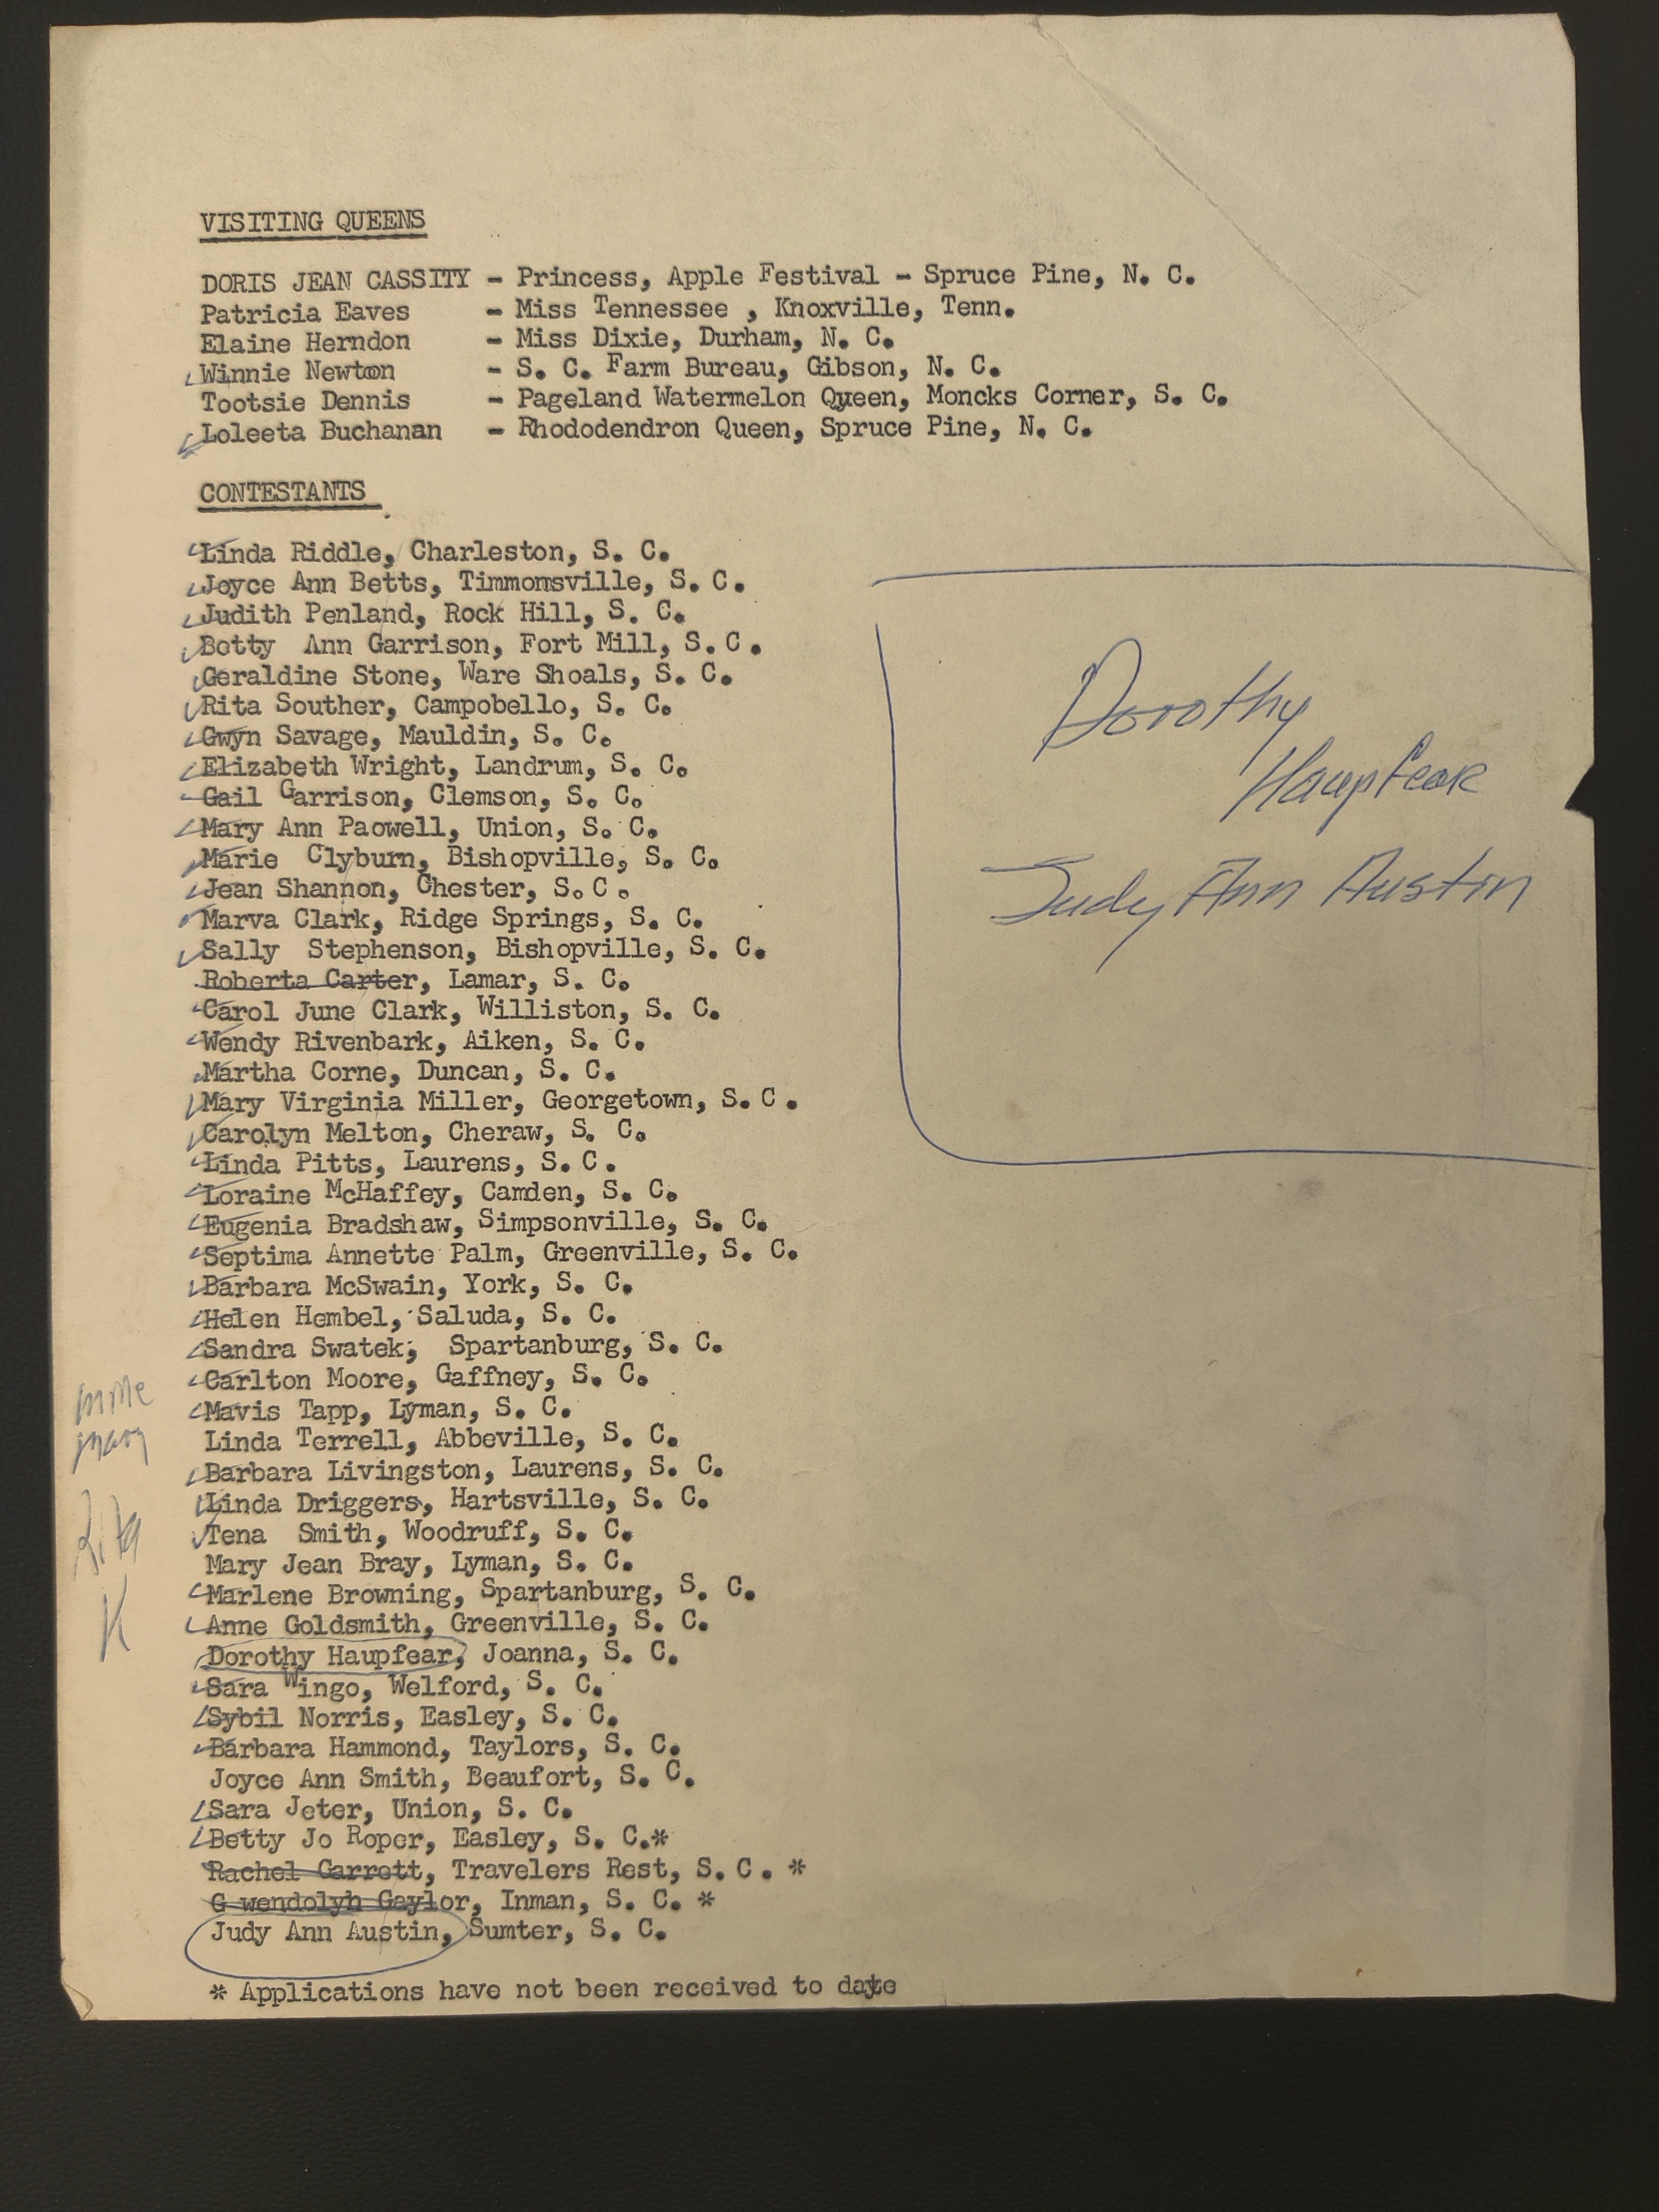 VISITING QUEENS
DORIS JEAN CASSITY - Princess, Apple Festival - Spruce Pine, N. C.
Patricia Eaves - Miss Tennessee , Knoxville, Tenn.
Elaine Herndon - Miss Dixie, Durham, N. C.
Winnie Newton - S. C. Farm Bureau, Gibson, N. C.
Tootsie Dennis - Pageland Watermelon Queen, Moncks Corner, S. C.
Loleeta Buchanan - Rhododendron Queen, Spruce Pine, N. C.
CONTESTANTS
Linda Riddle, Charleston, S. C.
Joyce Ann Betts, Timmonsville, S. C.
Judith Penland, Rock Hill, S. C.
Betty Ann Garrison, Fort Mill, S. C.
Geraldine Stone, Ware Shoals, S. C.
Rita Souther, Campobello, S. C.
Gwyn Savage, Mauldin, S. C.
Elizabeth Wright, Landrum, S. C.
Gail Garrison, Clemson, S. C.
Mary Ann Paowell, Union, S. C.
Marie Clyburn, Bishopville, S. C.
Jean Shannon, Chester, S. C.
Marva Clark, Ridge Springs, S. C.
Sally Stephenson, Bishopville, S. C.
Roberta Carter, Lamar, S. C.
Carol June Clark, Williston, S. C.
Wendy Rivenbark, Aiken, S. C.
Martha Corne, Duncan, S. C.
Mary Virginia Miller, Georgetown, S. C.
Carolyn Melton, Cheraw, S. C.
Linda Pitts, Laurens, S. C.
Loraine McHaffey, Camden, S. C.
Eugenia Bradshaw, Simpsonville, S. C.
Septima Annette Palm, Greenville, S. C.
Barbara McSwain, York, S. C.
Helen Hembel, Saluda, S. C.
Sandra Swatek, Spartanburg, S. C.
Carlton Moore, Gaffney, S. C.
Mavis Tapp, Lyman, S. C.
Linda Terrell, Abbeville, S. C.
Barbara Livingston, Laurens, S. C.
Linda Driggers, Hartsville, S. C.
Tena Smith, Woodruff, S. C.
Mary Jean Bray, Lyman, S. C.
Marlene Browning, Spartanburg, S. C.
Anne Goldsmith, Greenville, S. C.
Dorothy Haupfear, Joanna, S. C.
Sara Wingo, Welford, S. C.
Sybil Norris, Easley, S. C.
Barbara Hammond, Taylors, S. C.
Joyce Ann Smith, Beaufort, S. C.
Sara Jeter, Union, S. C.
Betty Jo Roper, Easley, S. C.*
Rachel Garrett, Travelers Rest, S. C. *
G wendolyn Gaylor, Inman, S. C. *
Judy Ann Austin, Sumter, S. C.
* Applications have not been received to date
Dorothy
Haupfear
Judy Ann Austin
Rita
K